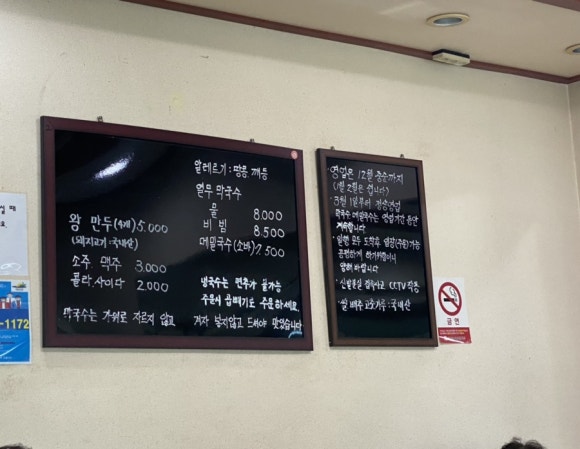 알레르기: 땅콩 깨등
열무 막국수
물 8.000
비빔 8.500
메밀국수(소바) 7.500
왕 만두(4개) 5.000
(돼지고기: 국내산)
소주. 맥주 3.000
콜라. 사이다 2.000
냉국수는 면추가 불가능
주문시 곱빼기로 주문하세요.
막국수는 가위로 자르지 않고
겨자 넣지않고 드셔야 맛있습니다
영업은 12월 중순까지
(1월 2월은 쉽니다)
3월 1일부터 정상영업
막국수 메밀국수는 영업기간 동안
계속합니다.
일행 모두 도착후 입장(주문)가능
공평하게 하기위함이니
양해 바랍니다
신발분실 CCTV 작동
쌀 배추 고춧가루: 국내산
금연
-1172